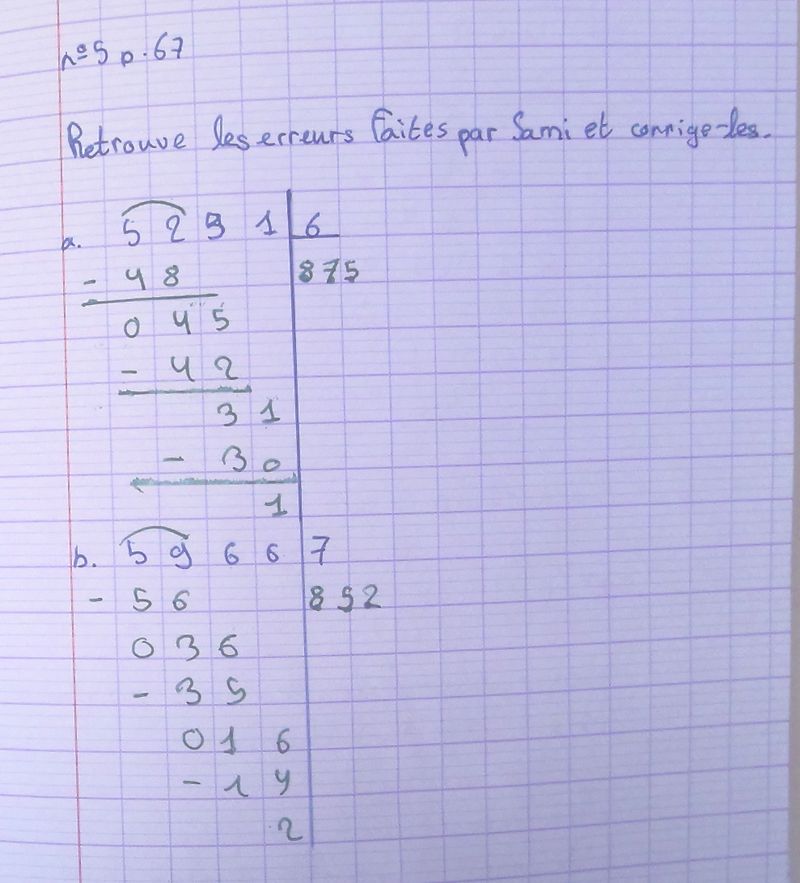 n°5 p.67
Retrouve les erreurs faites par Sami et corrige-les.
a. 5 2 5 1 6
- 4 8 875
0 4 5
- 4 2
3 1
- 3 0
1
b. 5 9 6 6 7
- 5 6 852
0 3 6
- 3 5
0 1 6
- 1 4
2